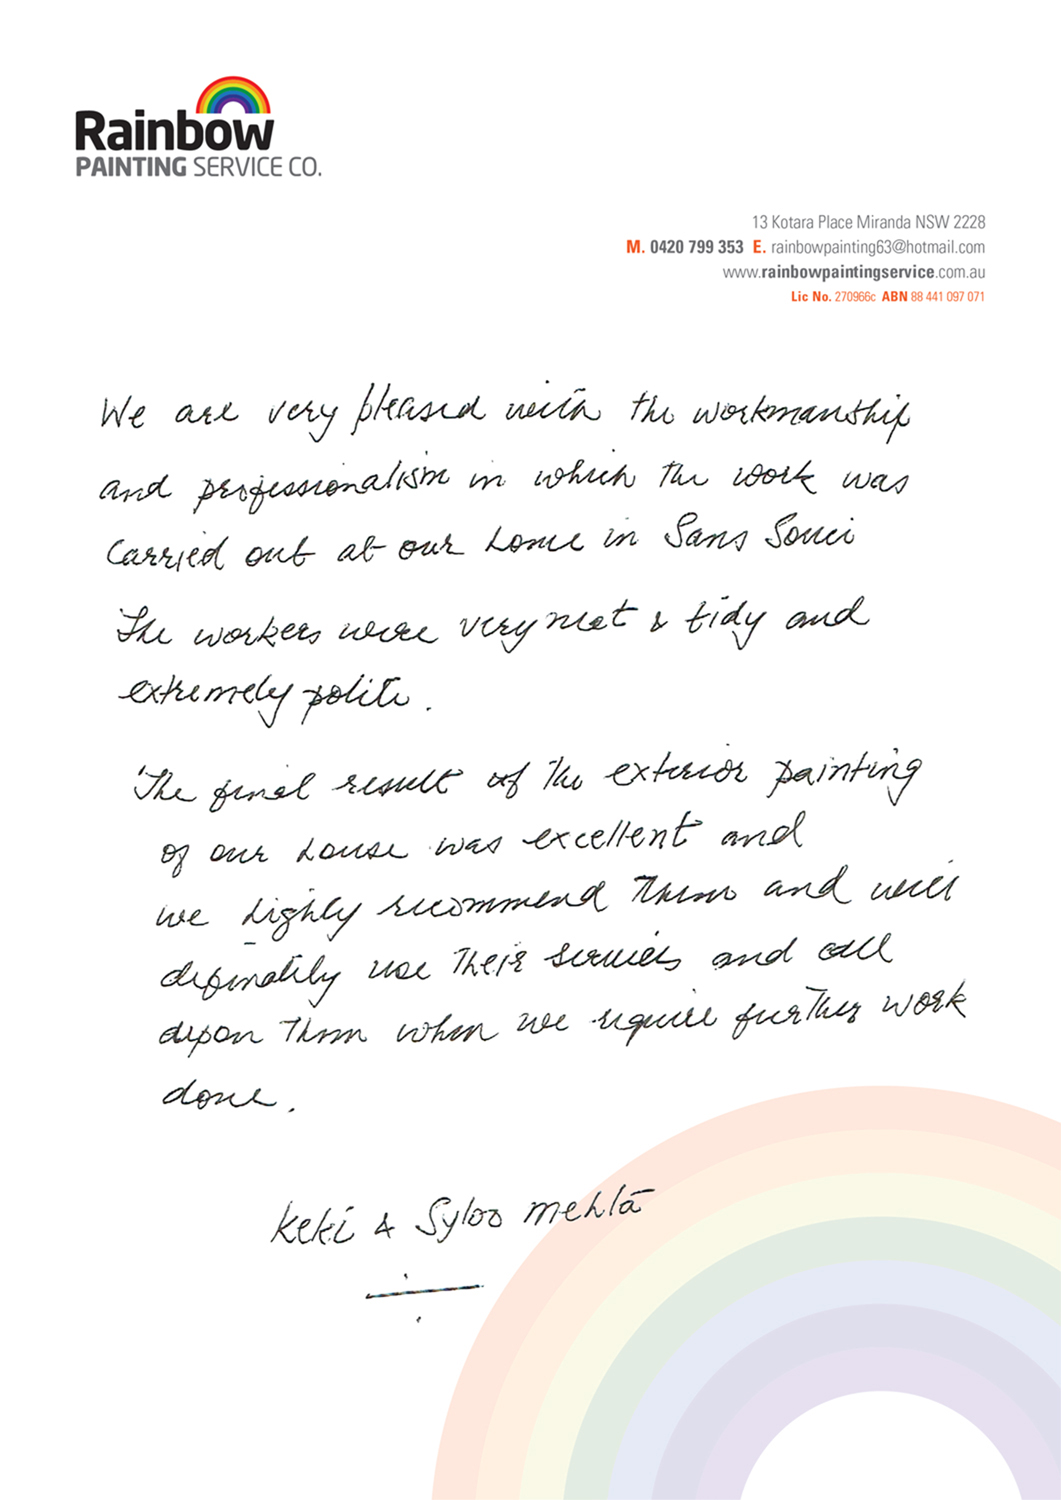 Rainbow
PAINTING SERVICE CO.
13 Kotara Place Miranda NSW 2228
M. 0420 799 353 E. rainbowpainting63@hotmail.com
www.rainbowpaintingservice.com.au
Lic No. 270966c ABN 88 441 097 071
We are very pleased with the workmanship
and professionalism in which the work was
carried out at our home in Sans Souci
The workers were very neat & tidy and
extremely polite.
The final result of the exterior painting
of our house was excellent and
we highly recommend them and will
definately use their services and call
upon them when we require further work
done.
Keki & Syloo Mehta